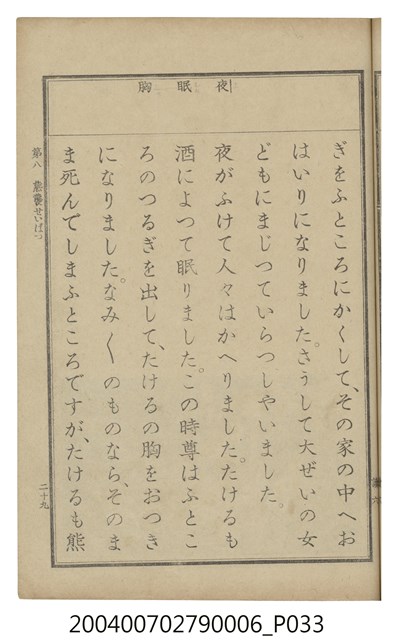 夜 眠 胸
ぎをふところにかくして、その家の中へお
はいりになりました。さうして大ぜいの女
どもにまじつていらつしやいました。
夜がふけて人々はかへりました。たけるも
酒によつて眠りました。この時尊はふとこ
ろのつるぎを出して、たけるの胸をおつき
になりました。なみ〳〵のものなら、そのま
ま死んでしまふところですが、たけるも熊
第八 熊襲せいばつ
二十九
200400702790006_P033